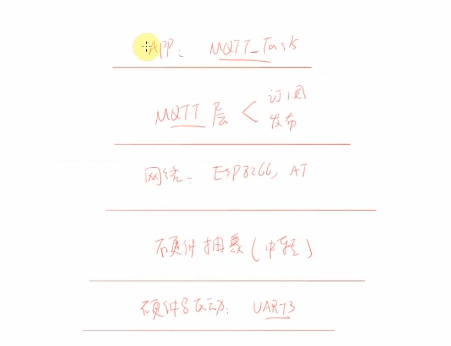 APP: MQTT_Task
MQTT层 < 订阅
发布
网络: ESP8266, AT
硬件抽象(中转)
硬件驱动: UART3